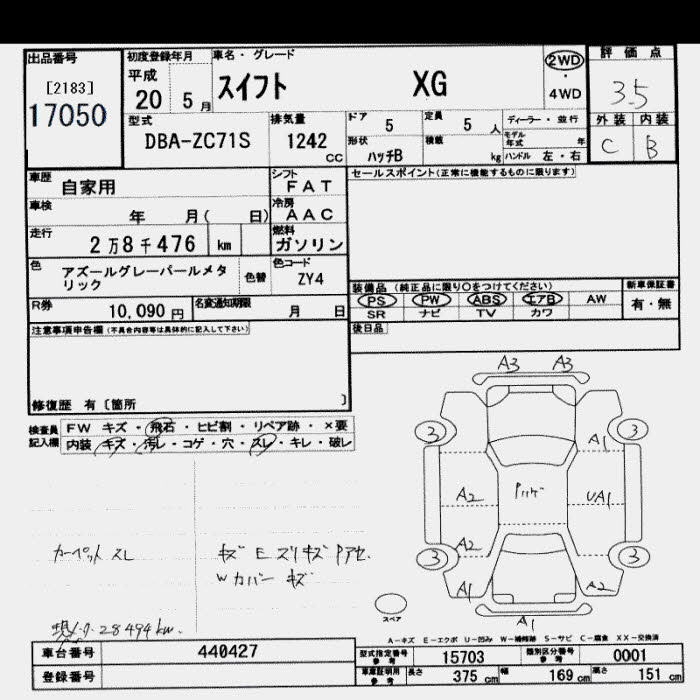 出品番号
[2183]
17050
初度登録年月
平成
20 5月
車名・グレード
スイフト XG
2WD
・
4WD
評価点
3.5
外装 内装
C B
型式
DBA-ZC71S
排気量
1242
CC
ドア 5
形状 ハッチB
定員 5 人
積載 kg
ディーラー・並行
モデル年式 年
ハンドル 左・右
車歴 自家用
シフト FAT
車検 年 月( 日)
冷房 AAC
走行 2万8千476 km
燃料 ガソリン
色 アズールグレーパールメタリック
色替
色コード ZY4
R券 10,090 円
名変通知期限 月 日
セールスポイント(正常に機能するものに限ります)
装備品 (純正品に限り○をつけてください)
PS PW ABS エアB AW
SR ナビ TV カワ
新車保証書
有・無
後日品
注意事項申告欄(不具合内容等は具体的に記入して下さい)
修復歴 有〔箇所 〕
検査員記入欄
FW キズ・飛石・ヒビ割・リペア跡・×要
内装 キズ・汚レ・コゲ・穴・スレ・キレ・破レ
A3 A3
3 3
A1
A2 UA1
A2
3 3
A1 A2
A1
スペア
カーペット スレ
キズ E スリキズ Pアセ.
W カバー キズ
現メーター 28494km.
A-キズ E-エクボ U-凹み W-補修跡 S-サビ C-腐食 XX-交換済
車台番号 440427
登録番号
型式指定番号 参考 15703
類別区分番号 参考 0001
車庫証明用 参考 長さ 375 cm 幅 169 cm 高さ 151 cm